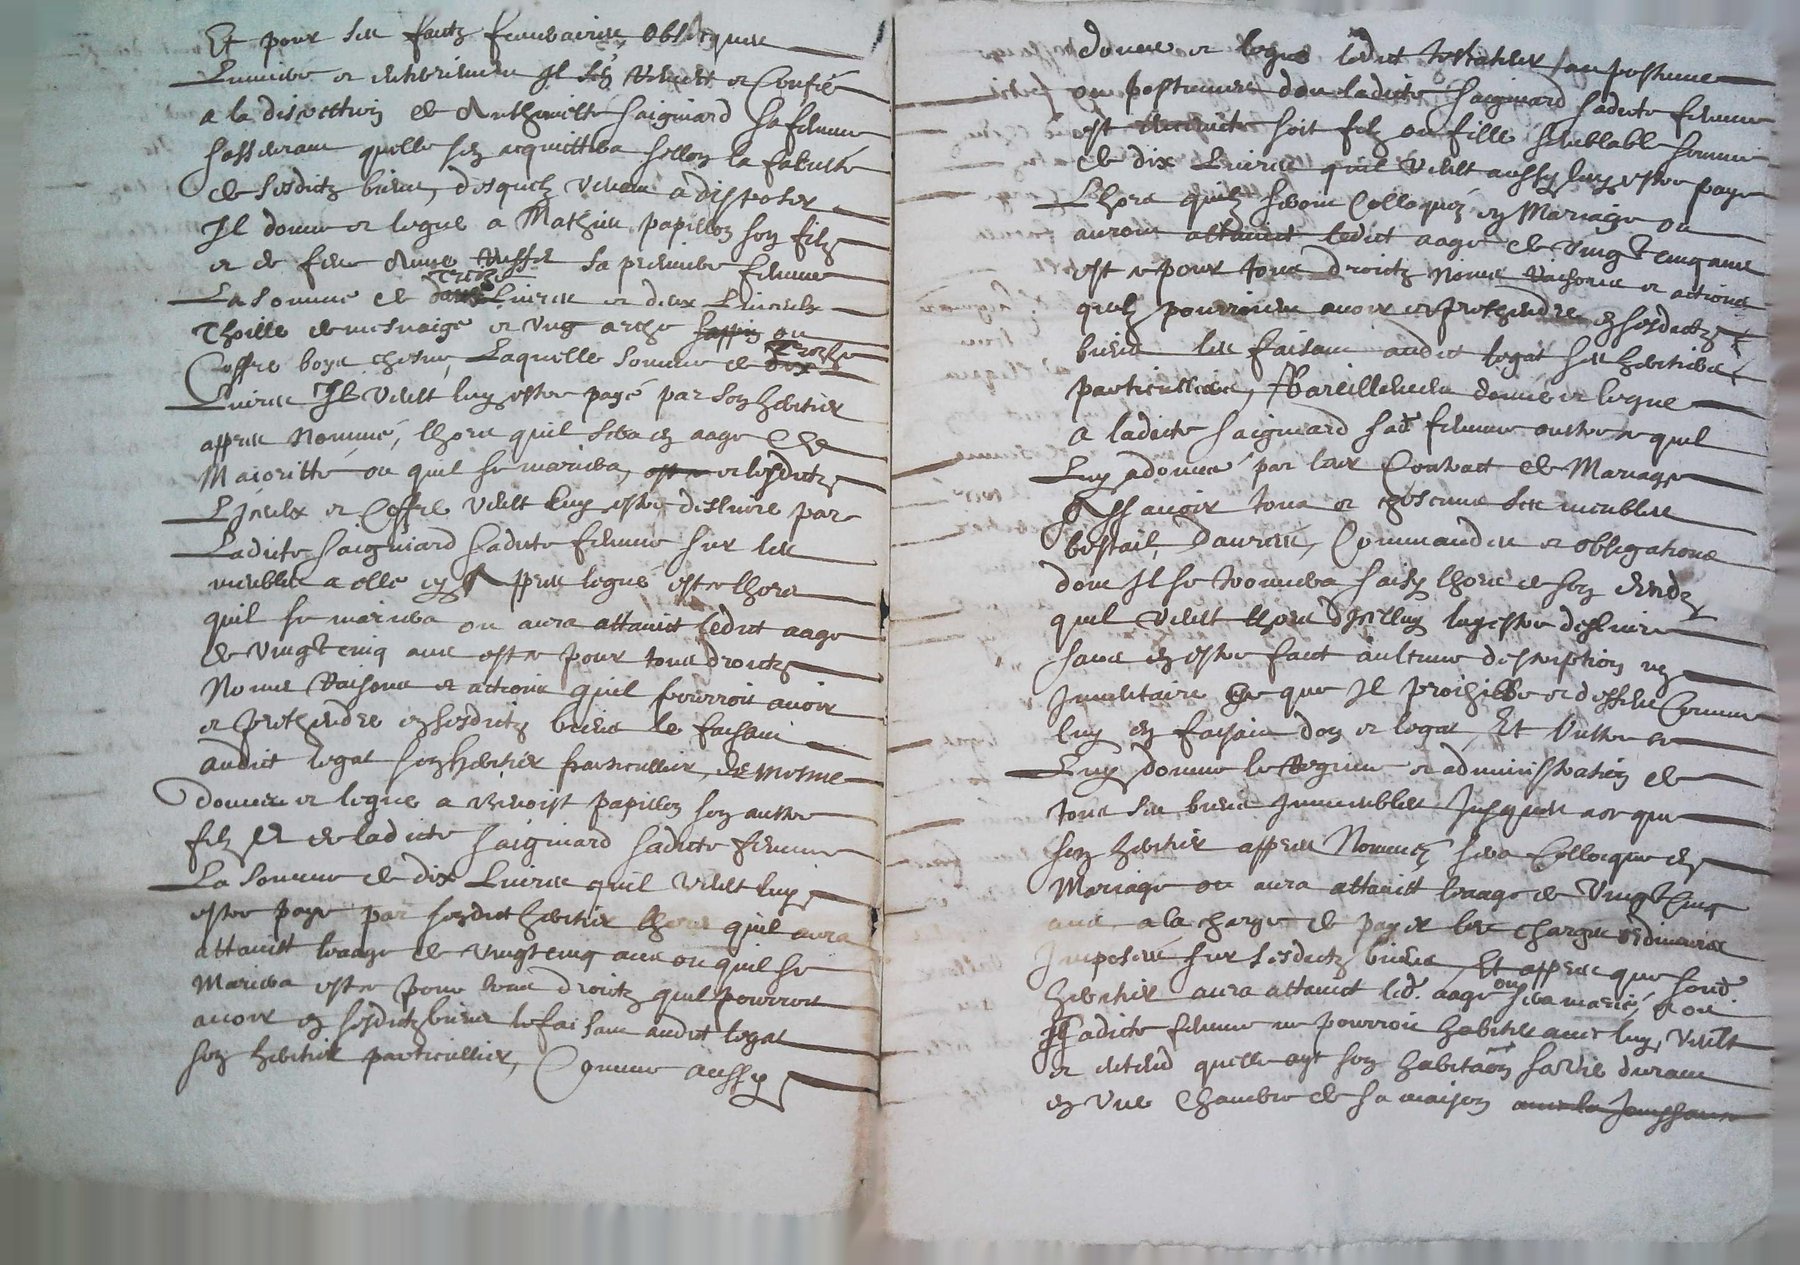 Et pour ses faictz funerairez, obsecques
Luminere et enterrement Il s'en remect et confie
a la discrettion de Anthoinette saignard sa femme
s'asseurant quelle s'en acquittera sellon la faculté
de sesdictz biens, desquelz venant a disposer
Il donne et legue a Mathieu papillon son filz
et de feue Anne sa premiere femme
La somme de treize Livres et deux Linceulx
Thoille de mesnaige et ung arche sappin ou
Coffre boys chesne, Laquelle somme de treize
Livres Il veult luy estre payé par son heritier
appres nommé, lhors quil sera en aage de
Majoritté ou quil se mariera, et lesdictz
Linceulx et Coffre veult luy estre deslivré par
Ladicte saignard sadicte femme sur les
meubles a elle cy appres legué est ce lhors
quil se mariera ou aura attainct ledict aage
de vingt cinq ans est ce pour tous droictz
Noms raisons et actions quil pourroit avoir
et prethendre en sesdictz biens le faisant
audict legat son heritier particullier, De mesme
donne et legue a Benoist papillon son aultre
filz Et de ladicte saignard sadicte femme
La somme de dix Livres quil veult luy
estre paye par sondict heritier lhors quil aura
attainct leaage de vingt cinq ans ou quil se
Mariera est ce pour tous droictz quil pourroit
avoir en sesdictz biens le faisant audict legat
son heritier particullier, Comme aussy
donne et legue ledict testateur au postume
ou postumes dont ladicte saignard sadicte femme
est enceinte soit filz ou fille semblable somme
de dix Livres quil veult aussy luy estre paye
Lhors quilz seront Colloquéz en Mariage ou
auront attainct ledict aage de vingt cinq ans
est ce pour tous droictz noms raisons et actions
quilz pourroient avoir et prethendre en sesdictz
biens les faisant audict legat ses heritiers
particulliers, Pareillement donne et legue
A ladicte saignard sad. femme oultre ce quil
Luy a donné par leur Contract de Mariage
Assavoir tous et chescuns ses meubles
bestail, danrees, Commandes et obligations
dont Il se trouvera saisy lhors de son
quil veult lhors d'icelluy luy estre deslivré
sans en estre faict aulcune description ny
Inventaire Ce que Il prohibe et deffend Comme
luy en faisant don et legat, Et oultre ce
Luy donne le regime et administration de
tous ses biens Immeubles Jusques a ce que
son heritier appres Nommé sera Collocque en
Mariage ou aura attainct leaage de vingt cinq
ans a la charge de payer les charges ordinaires
Imposéés sur sesdictz biens, Et appres que sond.
heritier aura attainct led. aage ou sera marié, sy
Ladicte femme ne pourroit habiter avec luy, veult
et entend quelle ayt son habitaon sa vie durant
en une chambre de sa maison avec la Jouyssance